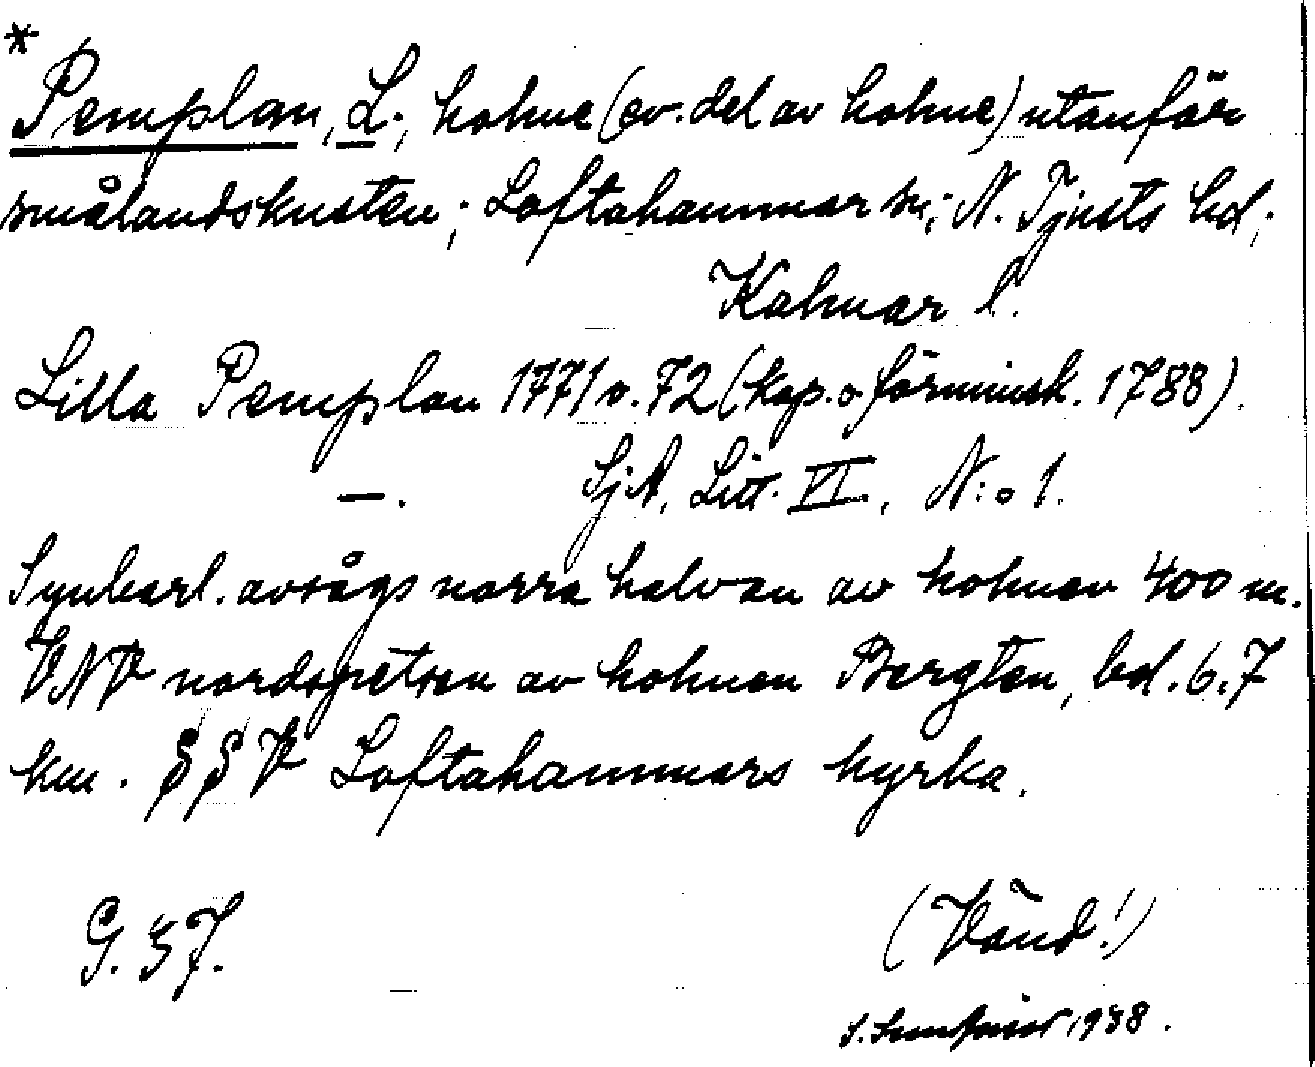 *
Pemplan, L., holme (ev. del av holme) utanför
smålandskusten; Loftahammar sn; N. Tjusts hd;
Kalmar l.
Lilla Pemplan 1771 o. 72 (kop. o. förminsk. 1788).
—. SjA, Litt. VI., N:o 1.
Synbarl. avsågs norra halvan av holmen 400 m.
VNV nordspetsen av holmen Bergten, bel. 6,7
km. SSV Loftahammars kyrka.
G. 37.
(Vänd!)
1938.